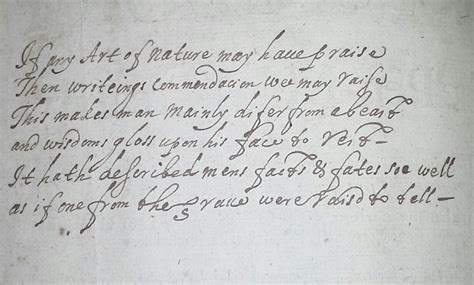 If any Art of Nature may have praise
Then writeings Commendacion wee may raise
This makes man mainly difer from a beast
and wisdoms gloss upon his face to rest-
It hath described mens facts & fates soe well
as if one from the grave were raisd to tell-